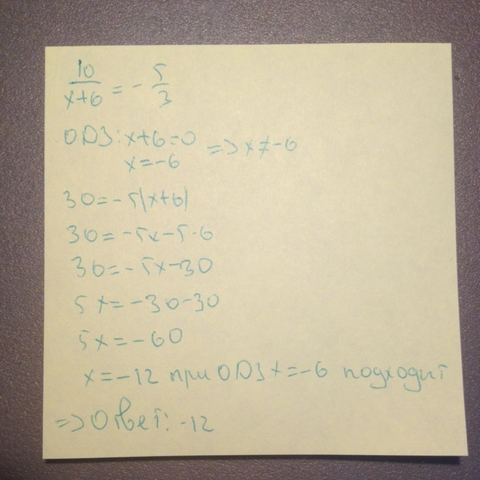 10/x+6 = -5/3
ОДЗ: x+6=0
x=-6 => x≠-6
30=-5(x+6)
30=-5x-5·6
30=-5x-30
5x=-30-30
5x=-60
x=-12 при ОДЗ x=-6 подходит
=> Ответ: -12